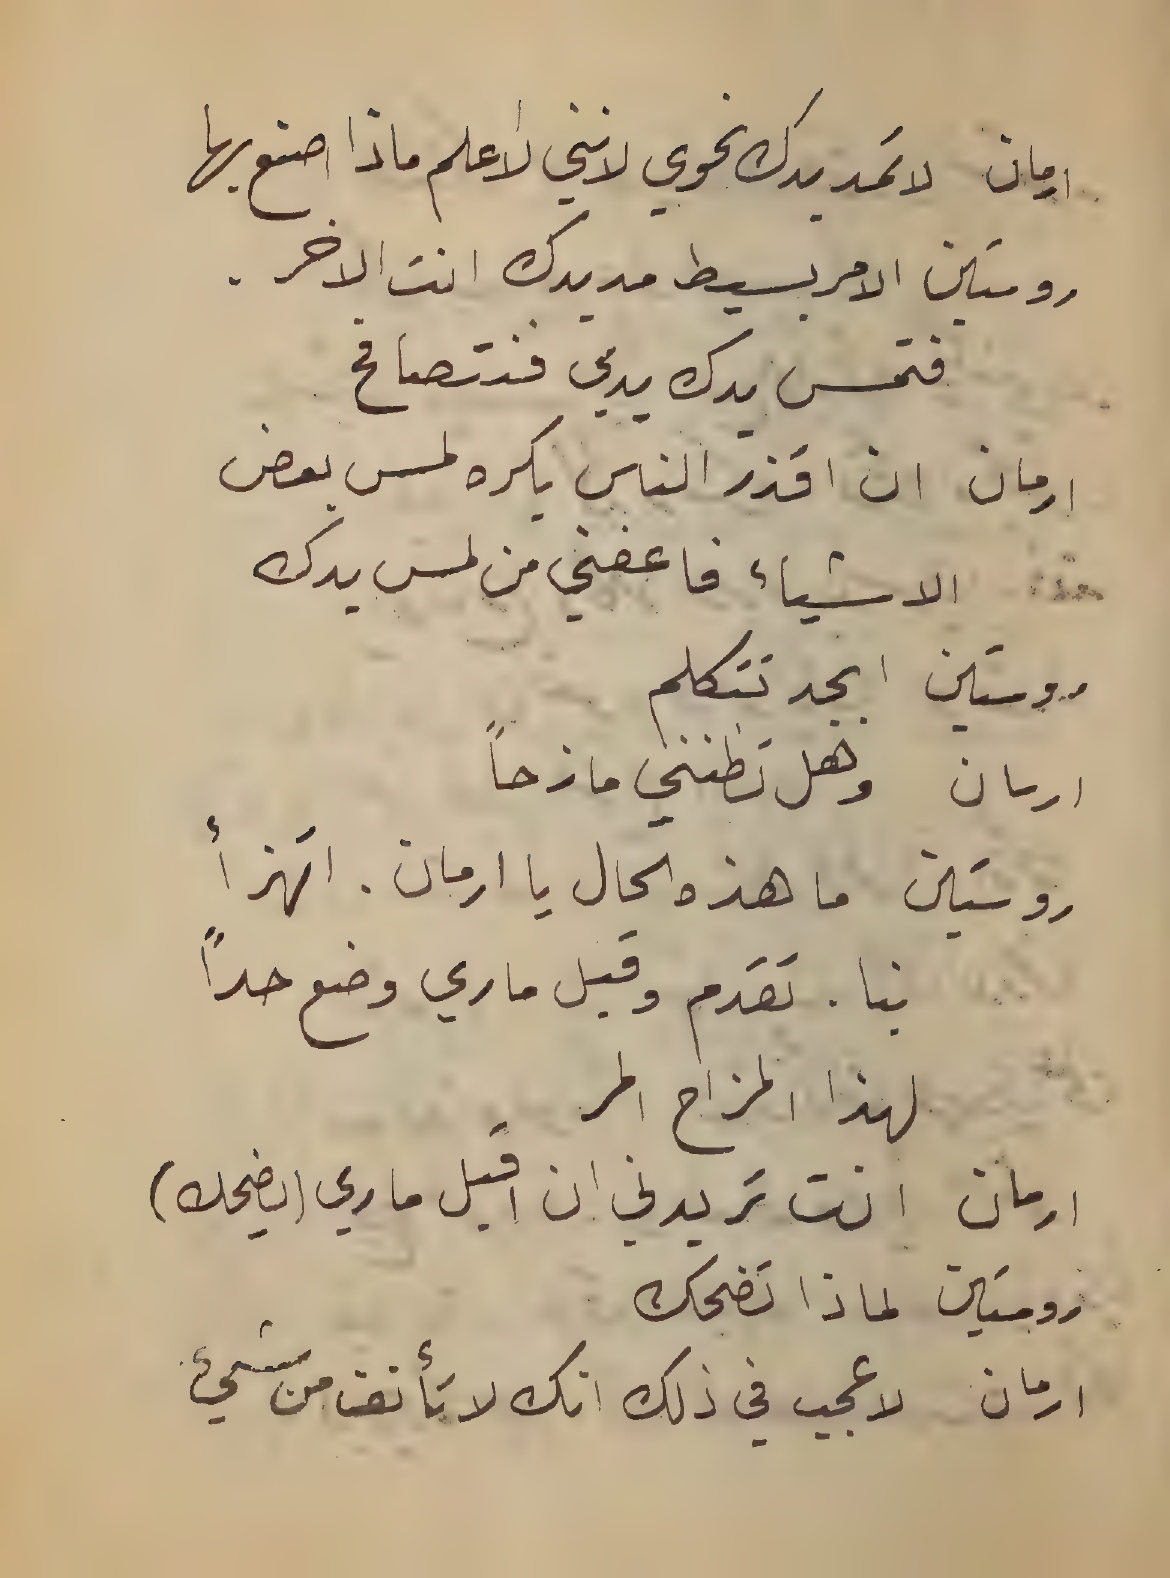 ارمان لا تمد يدك نحوي لانني لا اعلم ماذا اصنع بها
روستين الامر بسيط مد يدك انت الاخر .
فتمس يدك يدي فنتصافح
ارمان ان اقذر الناس يكره لمس بعض
الاشياء فاعفني من لمس يدك
روستين ابجد تتكلم
ارمان وهل تظنني مازحاً
روستين ما هذه الحال يا ارمان . اتهزأ
بنا . تقدم وقبل ماري وضع حداً
لهذا المزاح المر
ارمان انت تريدني ان اقبل ماري (يضحك)
روستين لماذا تضحك
ارمان لا عجب في ذلك انك لا تأنف من شيء